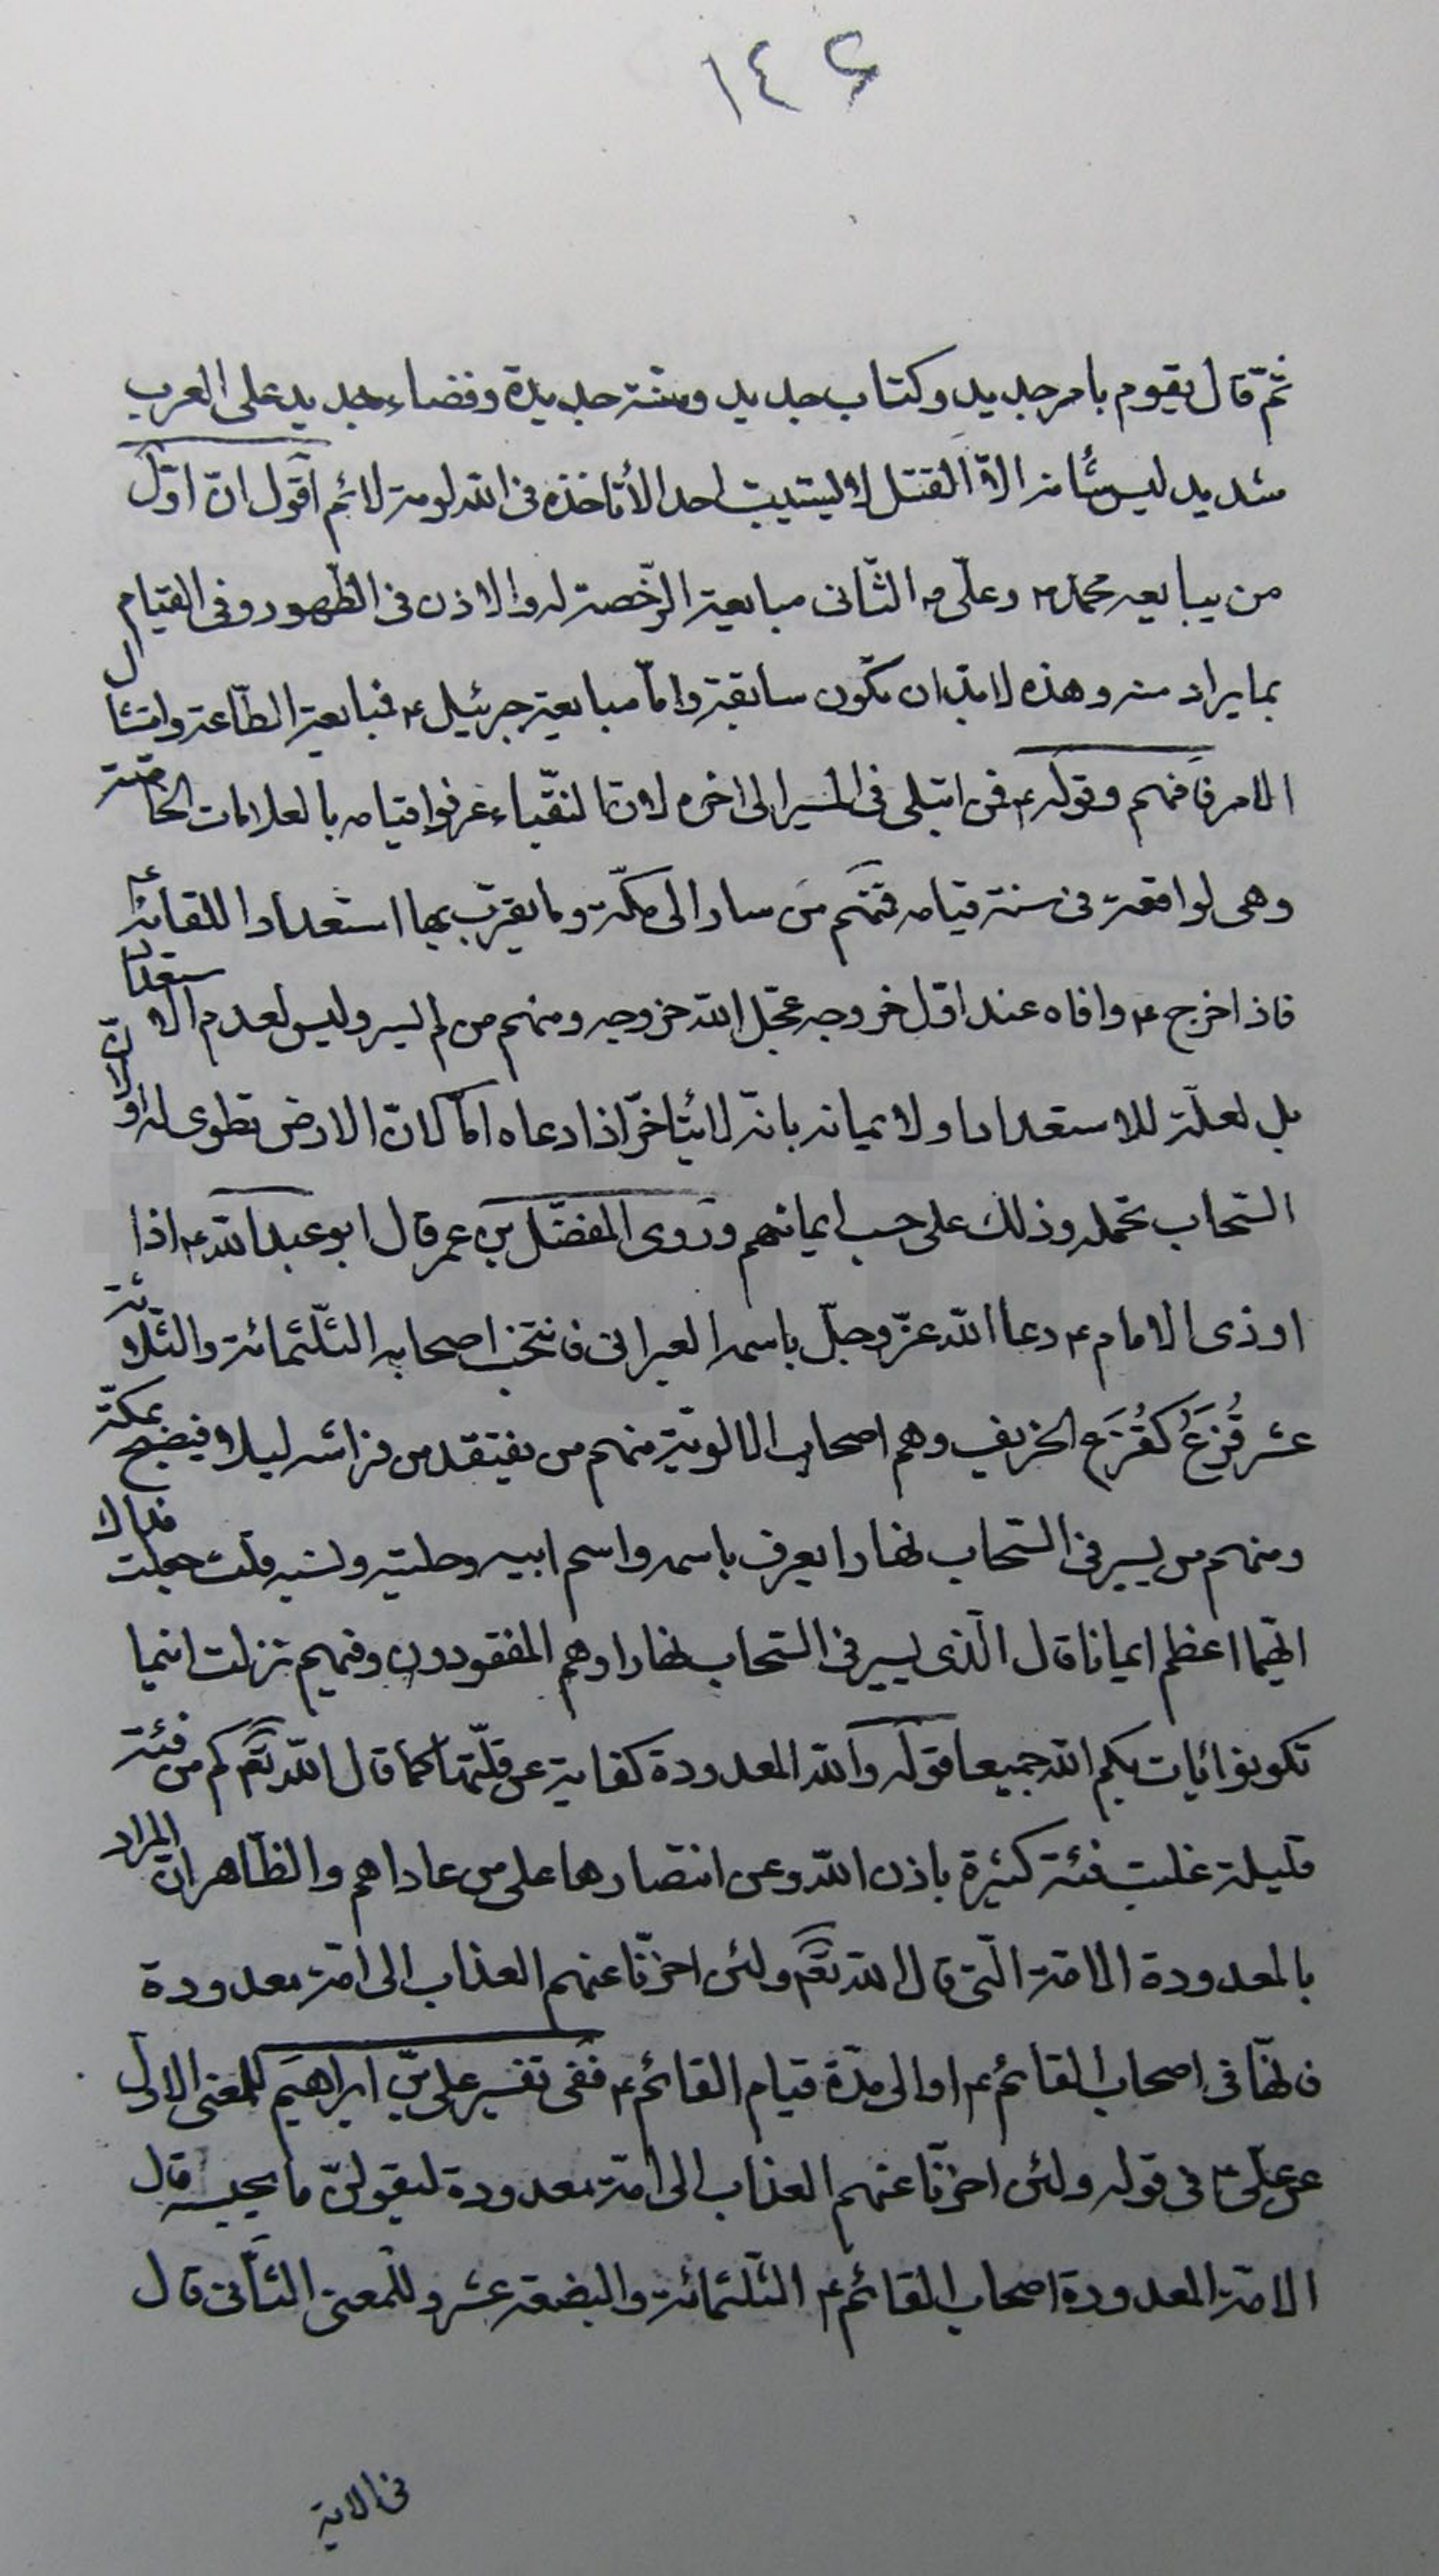 ١٤٤
ثمّ قال يقوم بامر جديد وكتاب جديد وسنّة جديدة وقضاء جديد على العرب
شديد ليس شأنه الّا القتل لا يستتيب احدا لا تاخذه فى الله لومة لائم اقول انّ اوّل
من يبايعه محمّد ص وعلىّ ع الثّانى مبايعة الرّخصة له والاذن فى الظّهور وفى القيام
بما يراد منه وهذه لا بدّ ان تكون سابقة وامّا مبايعة جبرئيل ع فمبايعة الطّاعة وامتثال
الامر فافهم وقوله ع فمن ابتلى فى المسير الى اخره لانّ النّقباء عرفوا قيامه بالعلامات الخاصّة
وهى لواقعة فى سنة قيامه فمنهم من سار الى مكّة وما يقرب بها استعدادا للقائه ع
فاذا خرج ع وافاه عند اوّل خروجه عجّل الله خروجه ومنهم من لم يسر وليس لعدم الاستعداد
بل لعلّة للاستعداد ولايمانه بانّه لا يتأخّر اذا دعاه امّا لانّ الارض تطوى له او لانّ
السّحاب تحمله وذلك على حسب ايمانهم وروى المفضّل بن عمر قال ابو عبد الله ع اذا
اوذى الامام ع دعا الله عزّ وجلّ باسمه العبرانى فانتخب اصحابه الثّلثمائة والثّلاثة
عشر قُزَعٌ كقُزَع الخريف وهم اصحاب الالوية منهم من يفتقد من فراشه ليلا فيصبح بمكّة
ومنهم من يسير فى السّحاب نهارا يعرف باسمه واسم ابيه وحليته ونسبه قلت جعلت فداك
ايّهما اعظم ايمانا قال الّذى يسير فى السّحاب نهارا وهم المفقودون وفيهم نزلت اينما
تكونوا يات بكم الله جميعا قوله والله المعدودة كفاية عن قلّتها كما قال الله تعم كم من فئة
قليلة غلبت فئة كثيرة باذن الله وعن انتصارها على من عاداهم والظّاهر انّ المراد
بالمعدودة الامّة الّتى قال الله تعم ولئن اخّرنا عنهم العذاب الى امّة معدودة
فانّها فى اصحاب القائم ع او الى مدّة قيام القائم ع ففى تفسير علىّ بن ابراهيم للمعنى الاوّل
عن علىّ ع فى قوله ولئن اخّرنا عنهم العذاب الى امّة معدودة ليقولنّ ما يحبسه قال
الامّة المعدودة اصحاب القائم ع الثّلثمائة والبضعة عشر وللمعنى الثّانى قال
فى الاية